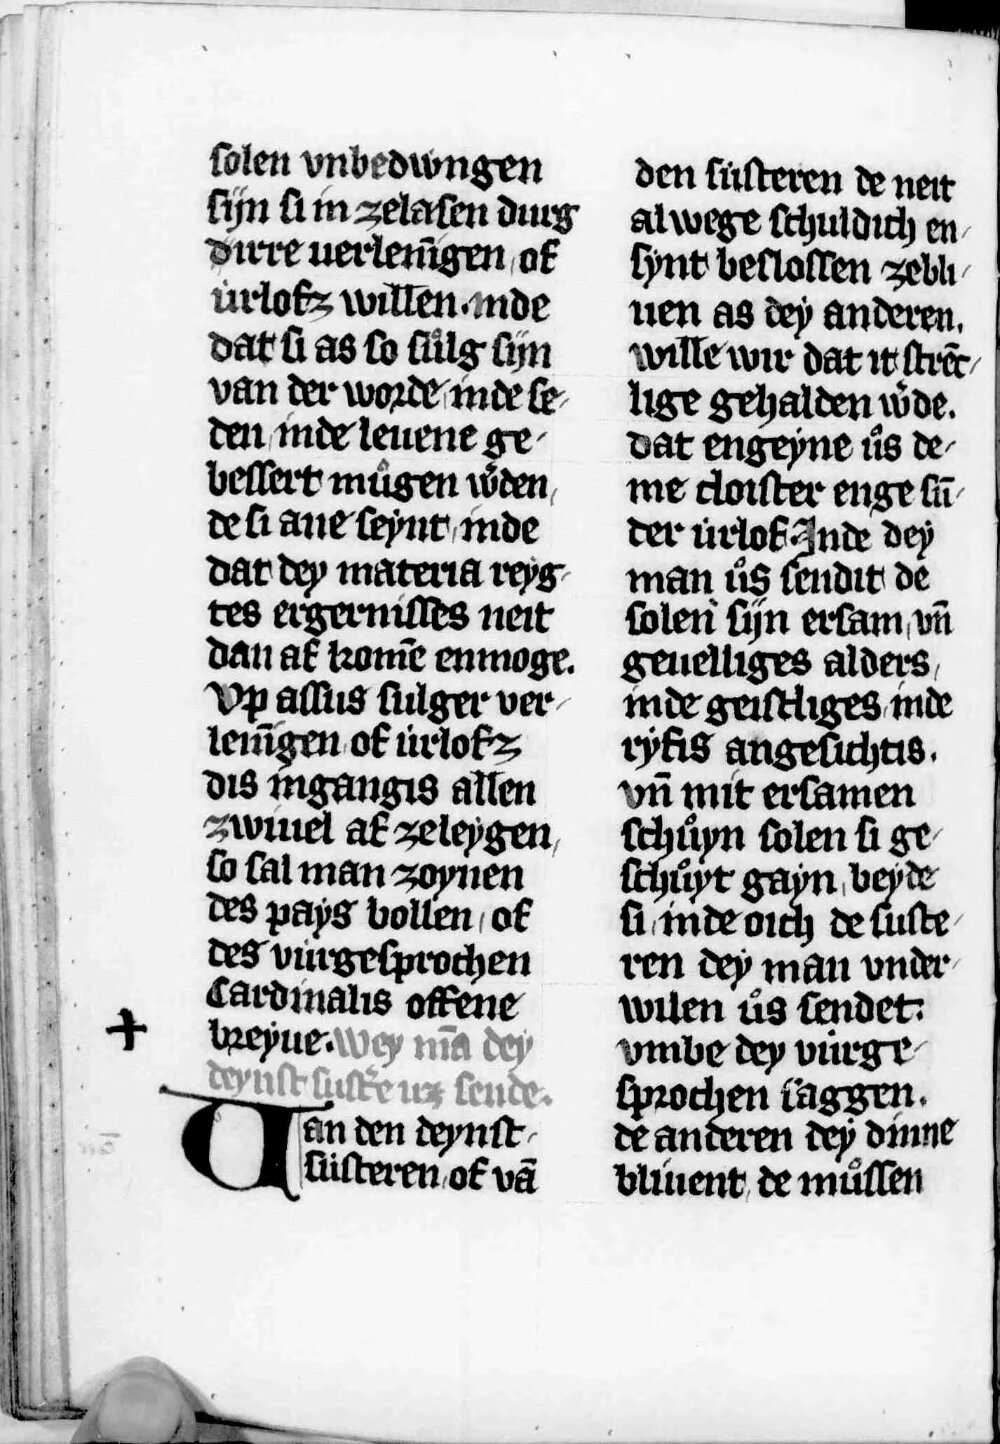 solen vnbedwngen
sijn si in zelasen durg
dirre uerlen̄igen, of
ùrlofz willen. inde
dat si as so sůlg sijn
van der worde, inde se/
den, inde leuene ge/
bessert můgen w̓den,
de si ane seẏnt, inde
dat deẏ materia reẏg/
tes ergernisses neit
dan af kom̄e enmoge.
Vp assus sulger ver/
len̄igen of ùrlofz
dis ingangis allen
zwiuel af zeleẏgen,
so sal man zoẏnen
des paẏs bollen, of
des vùrgesprochen
Cardinalis offene
breẏue. Weẏ mā deẏ
deẏnst sust̓e uz sende.
Uan den deẏnst/
sùsteren, of vā
den sùsteren de neit
alwege schuldich en/
sẏnt beslossen zebli/
uen as deẏ anderen,
wille wir dat it strēc/
lige gehalden w̓de.
dat engeẏne ůs de/
me cloister enge sū/
der ùrlof. Inde deẏ
man ůs sendit de
solen sijn ersam, vn̄
geuelliges alders,
inde geistliges, inde
rẏfis angesichtis.
vn̄ mit ersamen
schůẏn solen si ge/
schůẏt gaẏn, beẏde
si, inde oich de suste/
ren deẏ man vnder/
wilen ůs sendet.
vmbe deẏ vùrge/
sprochen saggen.
de anderen deẏ dinne
bliuent, de můssen